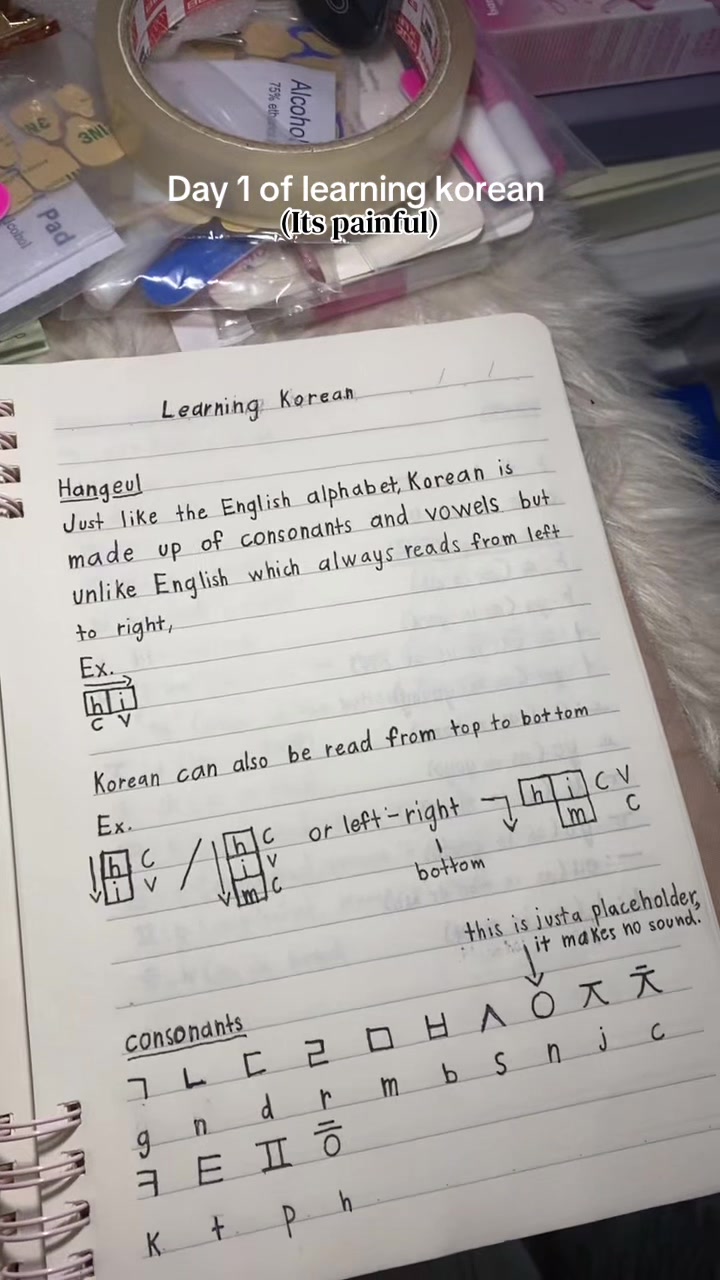 Alcohol
75% eth
3M
3NI
Pad
Alcohol
Day 1 of learning korean
(Its painful)
Learning Korean
/ /
Hangeul
Just like the English alphabet, Korean is
made up of consonants and vowels but
unlike English which always reads from left
to right,
Ex.
h i
C V
Korean can also be read from top to bottom
Ex.
h C
i V
/
h C
i V
m C
or left-right
bottom
h i C V
m C
this is just a placeholder,
it makes no sound.
consonants
ㄱ ㄴ ㄷ ㄹ ㅁ ㅂ ㅅ ㅇ ㅈ ㅊ
g n d r m b s n j c
ㅋ ㅌ ㅍ ㅎ
k t p h